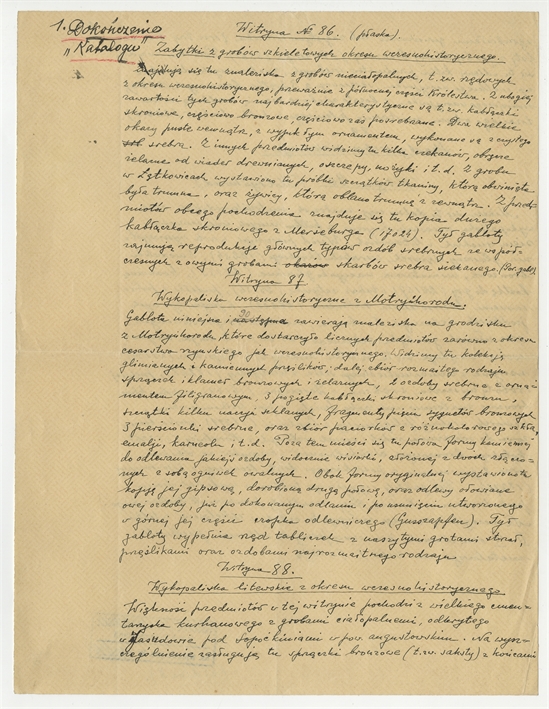 1. Dokończenie
„Katalogu"
Witryna № 86. (płaska).
Zabytki z grobów szkieletowych okresu wczesnohistorycznego.
Znajdują się tu znaleziska z grobów nieciałopalnych, t. zw. rzędowych
z okresu wczesnohistorycznego, przeważnie z północnej części Królestwa. Z
zawartości tych grobów najbardziej charakterystyczne są t. zw. kabłączki
skroniowe, częściowo bronzowe, częściowo zaś posrebrzane. Dwa wielkie
okazy puste wewnątrz, z wypukłym ornamentem, wykonano są z czystego
srebra. Z innych przedmiotów widzimy tu kilka czekanów, obręcze
żelazne od wiader drewnianych, oszczepy, nożyki i t. d. Z grobu
w Łętkowicach wystawiono tu próbki szczątków tkaniny, którą obwinięta
była trumna, oraz żywicy, którą oblano trumnę z zewnątrz. Z przed-
miotów obcego pochodzenia znajduje się tu kopia dużego
kabłączka skroniowego z Merseburga (17024). Tył gabloty
zajmują reprodukcje głównych typów ozdób srebrnych ze współ-
czesnych z owymi grobami skarbów srebra siekanego. (Por. gabl.)
Witryna 87
Wykopaliska wczesnohistoryczne z Motryńhorodu.
Gablota niniejsza i następna zawierają znaleziska na grodzisku
z Motryńhorodu, które dostarczyło licznych przedmiotów zarówno z okresu
cesarstwa rzymskiego jak wczesnohistorycznego. Widzimy tu kolekcję
glinianych i kamiennych przęślików; dalej zbiór rozmaitego rodzaju
sprzączek i klamer bronzowych i żelaznych, 2 ozdoby srebrne z orna-
mentem filigranowym, 3 pogięte kabłączki skroniowe z bronzu,
szczątki kilku naczyń szklanych, fragmenty pięciu sygnetów bronzowych
3 pierścionki srebrne, oraz zbiór paciorków z różnokolorowego szkła,
emalji, karneolu i t. d. Poza tem mieści się tu połowa formy kamiennej
do odlewania jakiejś ozdoby, widocznie wisiorki, złożonej z dwóch złączo-
nych z sobą ogniwek owalnych. Obok formy oryginalnej wystawiono
kopję jej gipsową, dorobioną drugą połową, oraz odlewy ołowiane
owej ozdoby, już po dokonanym odlaniu i po usunięciu utworzonego
w górnej jej części czopka odlewniczego (Gusszapfen). Tył
gabloty wypełnia rząd tabliczek z naszytymi grotami strzał,
przęślikami oraz ozdobami najrozmaitszego rodzaju
Witryna 88.
Wykopaliska litewskie z okresu wczesnohistorycznego
Większość przedmiotów w tej witrynie pochodzi z wielkiego cmen-
tarzyska kurhanowego z grobami ciałopalnemi, odkrytego
w Jasudowie pod Sopoćkiniami w pow. augustowskim. Na wysz-
czególnienie zasługują tu sprzączki bronzowe (t. zw. saksty) z końcami